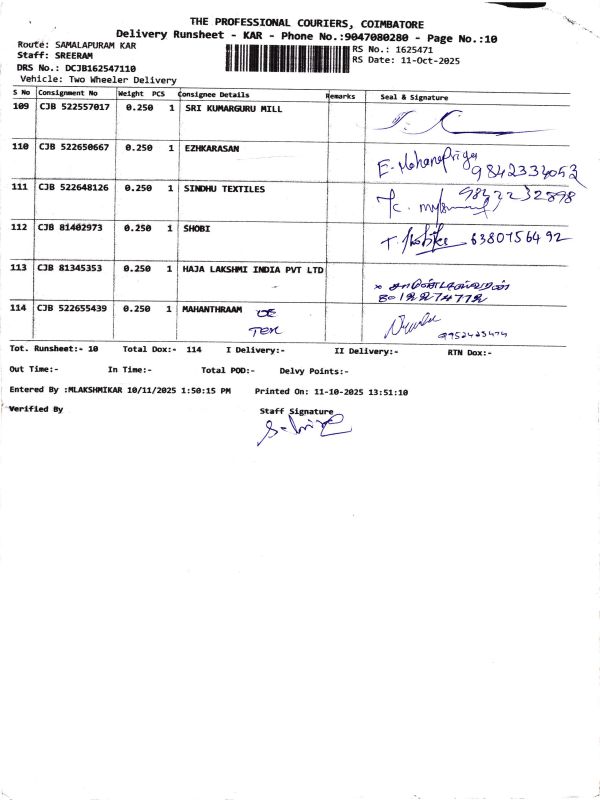 THE PROFESSIONAL COURIERS, COIMBATORE
Delivery Runsheet - KAR - Phone No.:9047080280 - Page No.:10
Route: SAMALAPURAM KAR
RS No.: 1625471
Staff: SREERAM
RS Date: 11-Oct-2025
DRS No.: DCJB162547110
Vehicle: Two Wheeler Delivery
S No Consignment No Weight PCS Consignee Details Remarks Seal & Signature
109 CJB 522557017 0.250 1 SRI KUMARGURU MILL
110 CJB 522650667 0.250 1 EZHKARASAN
E. Mohanapriya 9842334053
111 CJB 522648126 0.250 1 SINDHU TEXTILES
112 CJB 81402973 0.250 1 SHOBI
6380756492
113 CJB 81345353 0.250 1 HAJA LAKSHMI INDIA PVT LTD
114 CJB 522655439 0.250 1 MAHANTHRAAM
Tot. Runsheet:- 10 Total Dox:- 114 I Delivery:- II Delivery:- RTN Dox:-
Out Time:- In Time:- Total POD:- Delvy Points:-
Entered By :MLAKSHMIKAR 10/11/2025 1:50:15 PM Printed On: 11-10-2025 13:51:10
Verified By Staff Signature